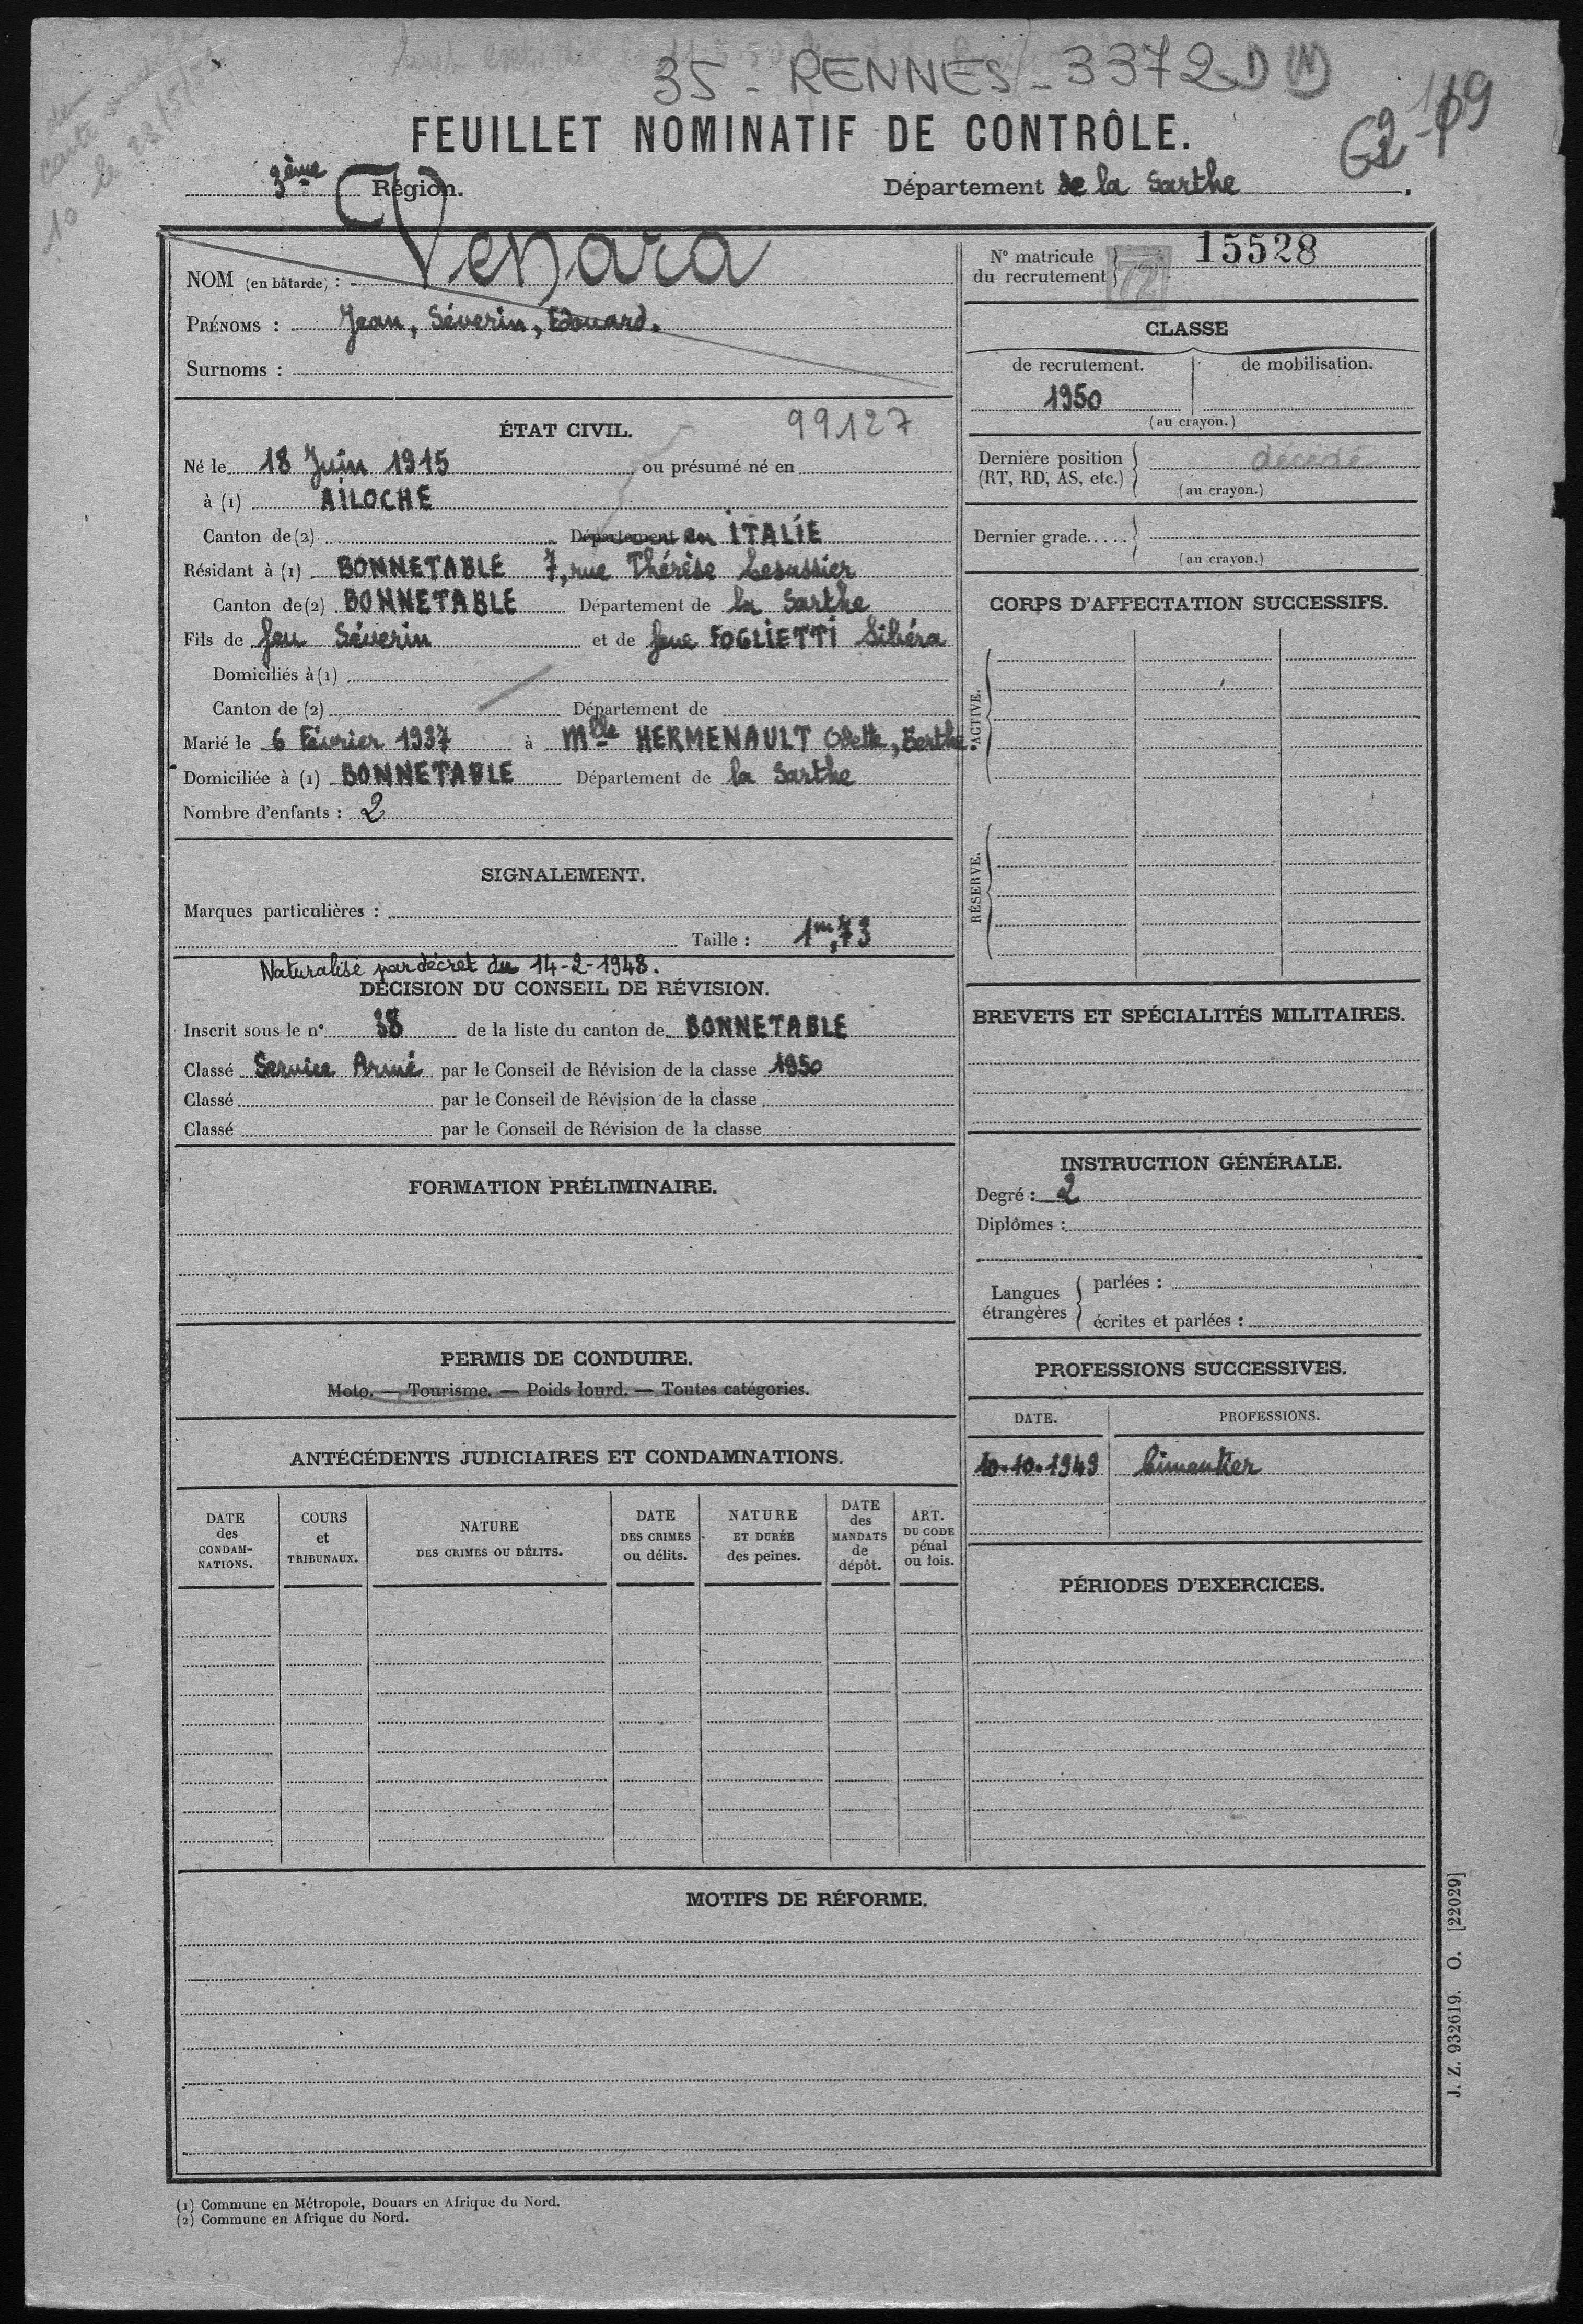 35 - RENNES - 3372 D (N)
62-119
FEUILLET NOMINATIF DE CONTRÔLE.
3ème Région.
Département de la Sarthe
NOM (en bâtarde) : Venara
PRÉNOMS : Jean, Séverin, Edouard.
Surnoms :
ÉTAT CIVIL.
99127
Né le 18 Juin 1915 ou présumé né en
à (1) AILOCHE
Canton de (2) Département en ITALIE
Résidant à (1) BONNETABLE 7, rue Thérèse Lesassier
Canton de (2) BONNETABLE Département de la Sarthe
Fils de feu Séverin et de feue FOGLIETTI Libéra
Domiciliés à (1)
Canton de (2) Département de
Marié le 6 Février 1937 à Mlle HERMENAULT Odette, Berthe.
Domiciliée à (1) BONNETABLE Département de la Sarthe
Nombre d'enfants : 2
SIGNALEMENT.
Marques particulières :
Taille : 1m,73
Naturalisé par décret du 14-2-1948.
DÉCISION DU CONSEIL DE RÉVISION.
Inscrit sous le n° 38 de la liste du canton de BONNETABLE
Classé Service Armé par le Conseil de Révision de la classe 1950
Classé par le Conseil de Révision de la classe
Classé par le Conseil de Révision de la classe
FORMATION PRÉLIMINAIRE.
PERMIS DE CONDUIRE.
Moto. — Tourisme. — Poids lourd. — Toutes catégories.
ANTÉCÉDENTS JUDICIAIRES ET CONDAMNATIONS.
DATE des CONDAM-NATIONS.
COURS et TRIBUNAUX.
NATURE DES CRIMES OU DÉLITS.
DATE DES CRIMES ou délits.
NATURE ET DURÉE des peines.
DATE des MANDATS de dépôt.
ART. DU CODE pénal ou lois.
N° matricule du recrutement 72 15528
CLASSE
de recrutement. de mobilisation.
1950
(au crayon.)
Dernière position (RT, RD, AS, etc.) décédé
(au crayon.)
Dernier grade.....
(au crayon.)
CORPS D'AFFECTATION SUCCESSIFS.
ACTIVE.
RÉSERVE.
BREVETS ET SPÉCIALITÉS MILITAIRES.
INSTRUCTION GÉNÉRALE.
Degré : 2
Diplômes :
Langues étrangères
parlées :
écrites et parlées :
PROFESSIONS SUCCESSIVES.
DATE. PROFESSIONS.
10.10.1949 Cimentier
PÉRIODES D'EXERCICES.
MOTIFS DE RÉFORME.
J. Z. 932619. O. [22029]
(1) Commune en Métropole, Douars en Afrique du Nord.
(2) Commune en Afrique du Nord.